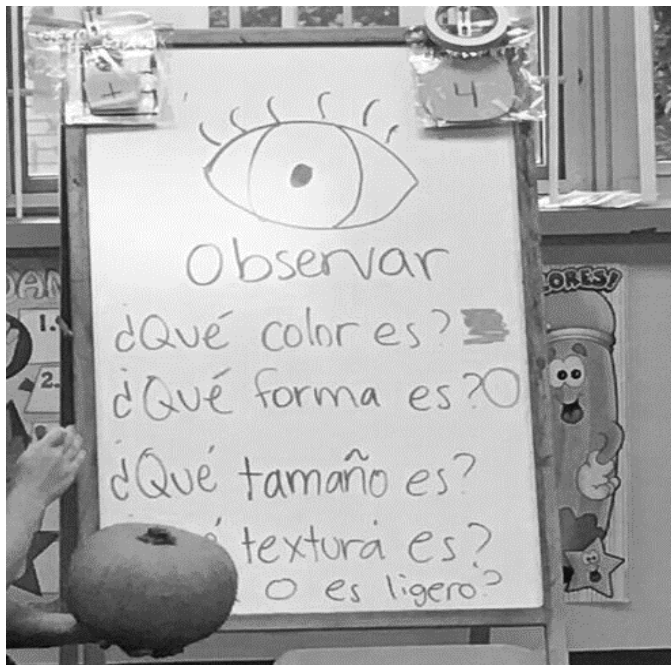 +
4
Observar
¿Qué color es?
¿Qué forma es?
¿Qué tamaño es?
textura es?
o es ligero?
1.
2.